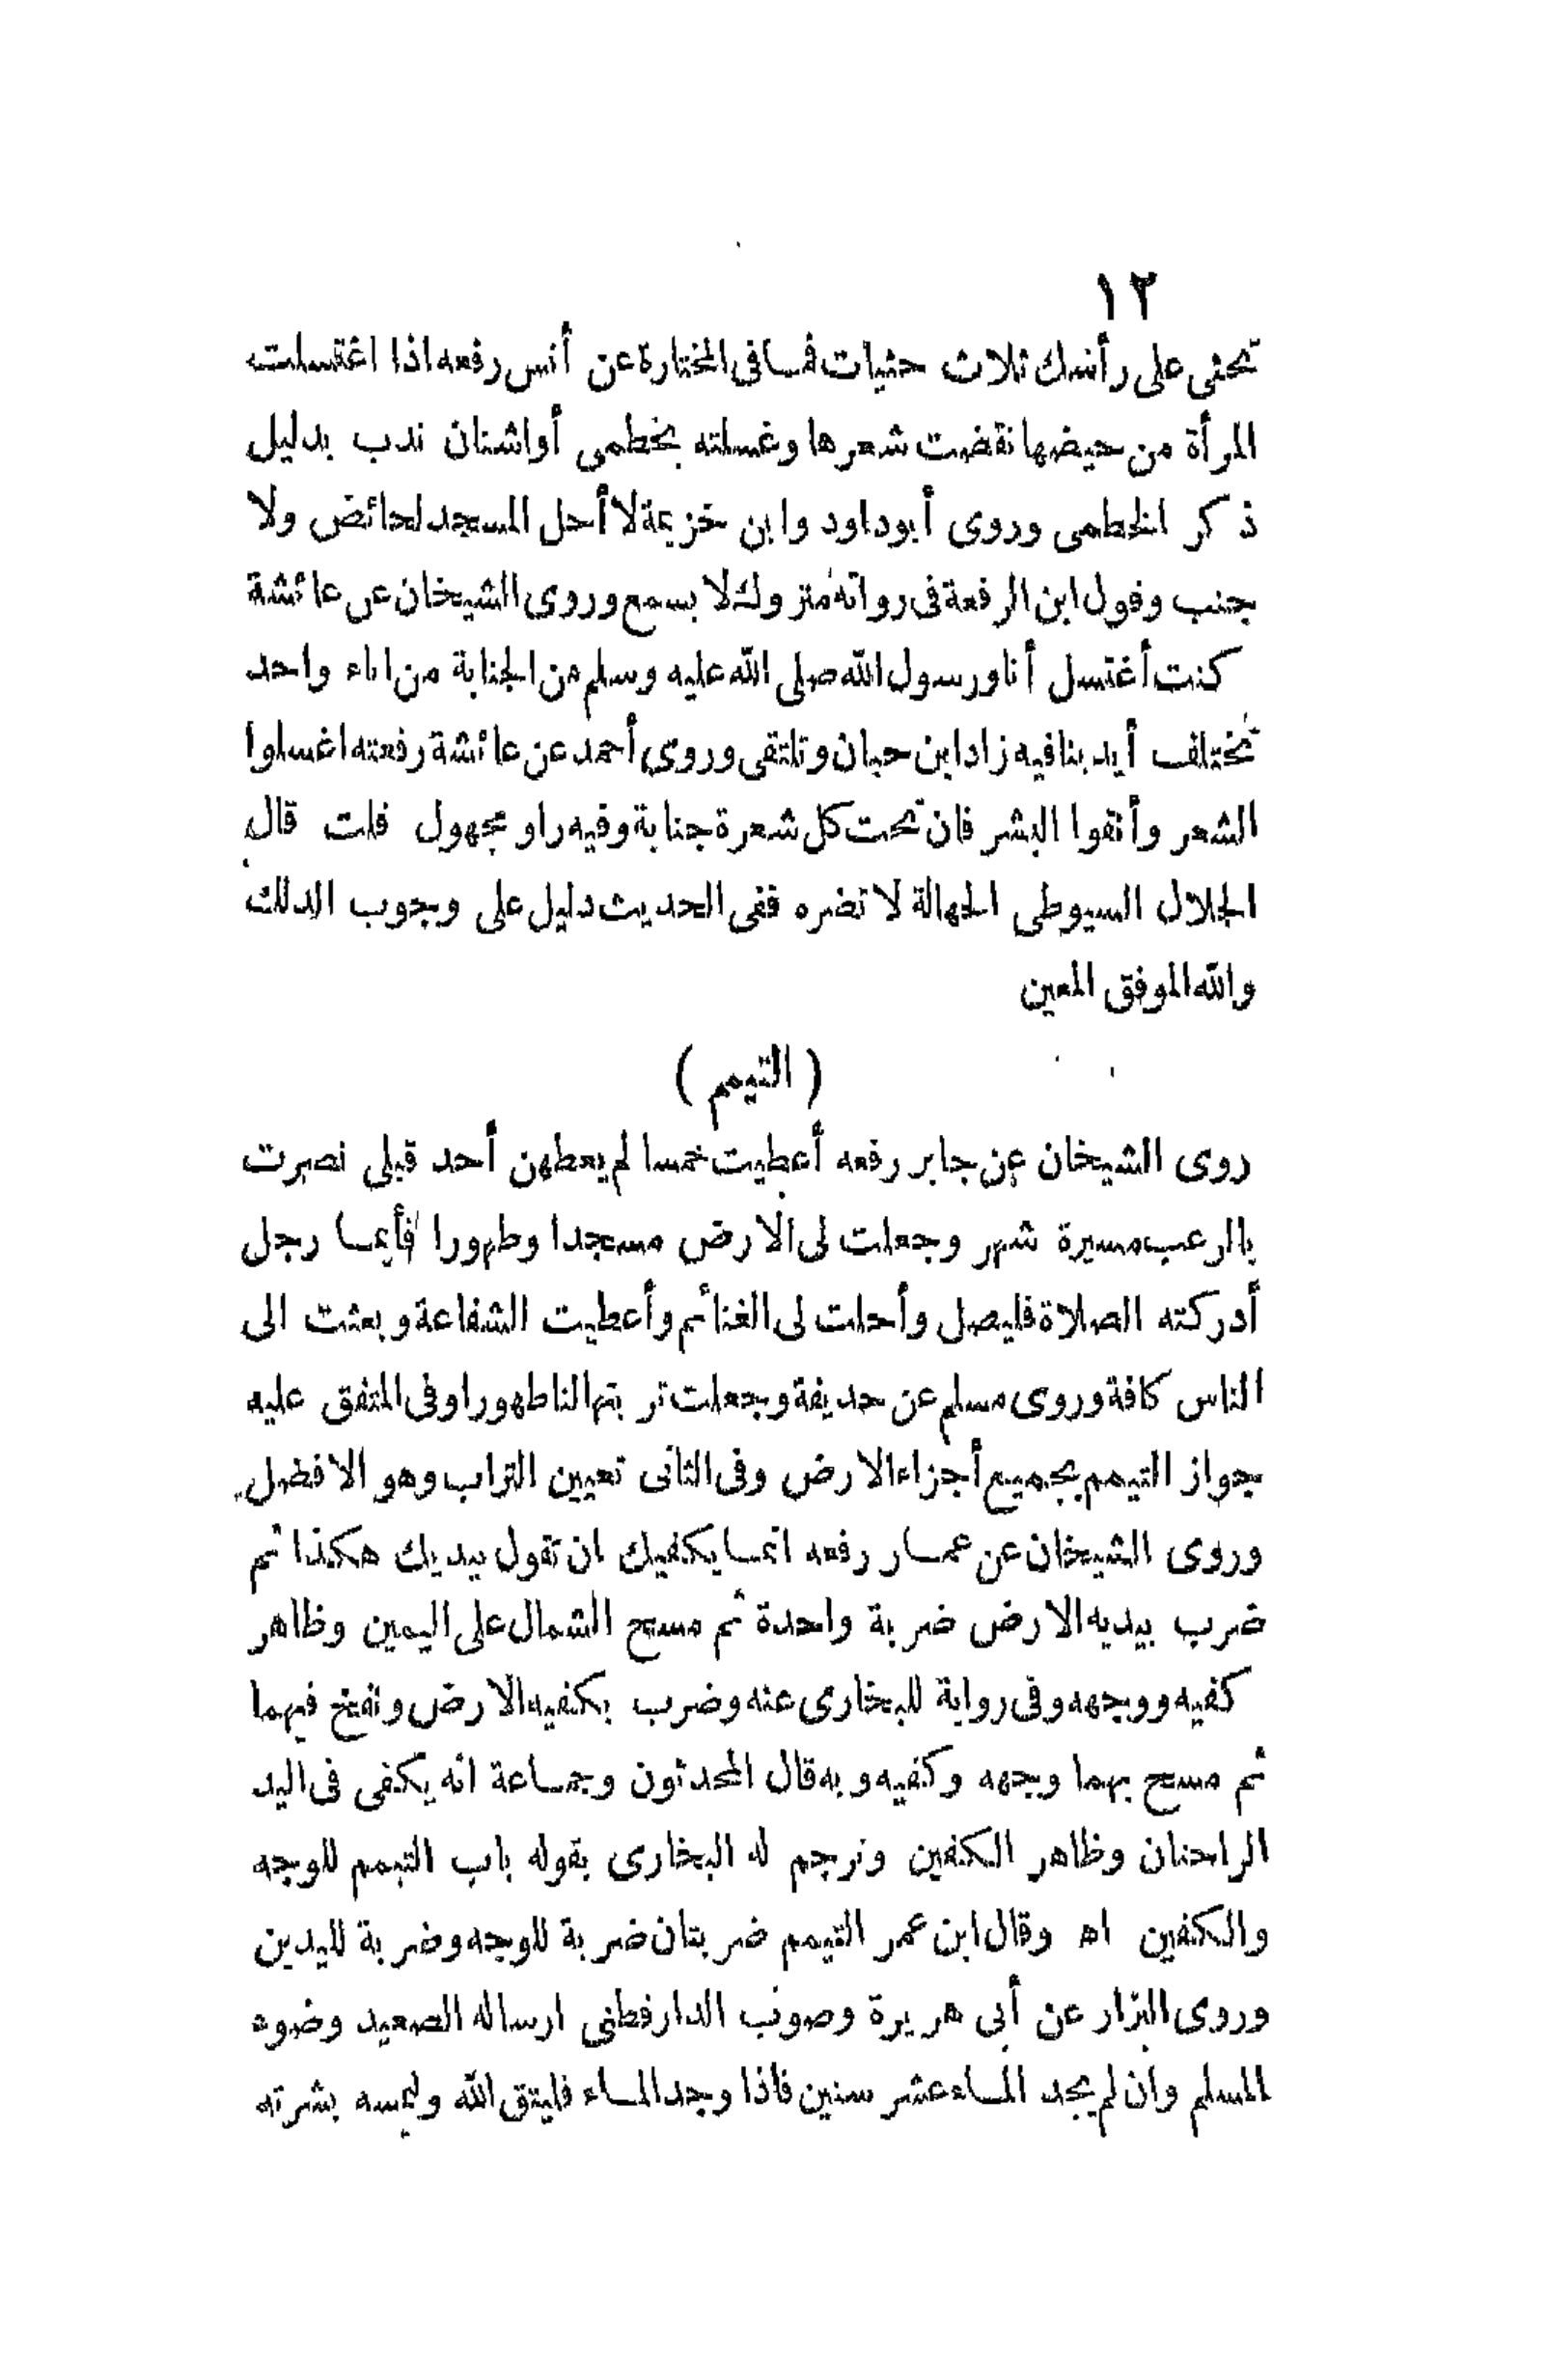 ١٢
تحثى على رأسك ثلاث حثيات فما فى المختارة عن أنس رفعه اذا اغتسلت
المرأة من حيضها نقضت شعرها وغسلته بخطمى أو اشنان ندب بدليل
ذكر الخطمى وروى أبو داود وابن خزيمة لا أحل المسجد لحائض ولا
جنب وقول ابن الرفعة فى رواته متروك لا يسمع وروى الشيخان عن عائشة
كنت أغتسل أنا ورسول الله صلى الله عليه وسلم من الجنابة من اناء واحد
تختلف أيدينا فيه زاد ابن حبان وتلتقى وروى أحمد عن عائشة رفعته اغسلوا
الشعر وأنقوا البشر فان تحت كل شعرة جنابة وفيه راو مجهول قلت قال
الجلال السيوطى الجهالة لا تضره ففى الحديث دليل على وجوب الدلك
والله الموفق المعين
( التيمم )
روى الشيخان عن جابر رفعه أعطيت خمسا لم يعطهن أحد قبلى نصرت
بالرعب مسيرة شهر وجعلت لى الارض مسجدا وطهورا فأيما رجل
أدركته الصلاة فليصل وأحلت لى الغنائم وأعطيت الشفاعة وبعثت الى
الناس كافة وروى مسلم عن حذيفة وجعلت تربتها لنا طهورا وفى المتفق عليه
جواز التيمم بجميع أجزاء الارض وفى الثانى تعيين التراب وهو الافضل
وروى الشيخان عن عمار رفعه انما يكفيك ان تقول بيديك هكذا ثم
ضرب بيديه الارض ضربة واحدة ثم مسح الشمال على اليمين وظاهر
كفيه ووجهه وفى رواية للبخارى عنه وضرب بكفيه الارض ونفخ فيهما
ثم مسح بهما وجهه وكفيه وبه قال المحدثون وجماعة انه يكفى فى اليد
الراحتان وظاهر الكفين وترجم له البخارى بقوله باب التيمم للوجه
والكفين اه وقال ابن عمر التيمم ضربتان ضربة للوجه وضربة لليدين
وروى البزار عن أبى هريرة وصوب الدارقطنى ارساله الصعيد وضوء
المسلم وان لم يجد الماء عشر سنين فاذا وجد الماء فليتق الله وليمسه بشرته